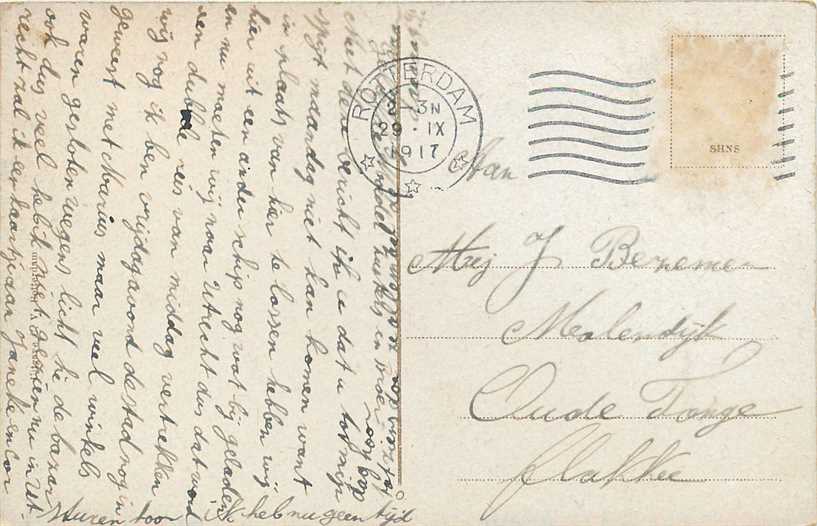 ROTTERDAM
-3N
29·IX
1917
SHNS
Aan
Mej J Benemen
Molendijk
Oude Tonge
flakkee
Met deze bericht ik u dat u tot mijn
spijt maandag niet kan komen want
in plaats van hier te lossen hebben wij
hier uit een ander schip nog wat bij geladen
en nu moeten wij naar Utrecht dus dat word
een dubbele reis van middag vertrekken
wij nog ik ben vrijdagavond de stad nog in
geweest met Marius maar veel winkels
waren gesloten wegens licht bij de bazar
ook dus veel heb ik niet gezien nu in Ut-
recht zal ik een kaartje aan Janeke en Cor
sturen hoor Ik heb nu geen tijd